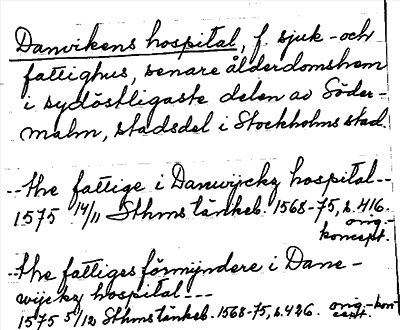 Danvikens hospital, f. sjuk- och
fattighus, senare ålderdomshem
i sydöstligaste delen av Söder-
malm, stadsdel i Stockholms stad.
--the fattige i Danwijckz hospital--
1575 14/11 Sthms tänkeb. 1568-75, s. 416.
orig.-
koncept.
--the fattiges förmyndere i Dane-
wijckz hospital---
1575 5/12 Sthms tänkeb. 1568-75, s. 426. orig.-kon-
cept.